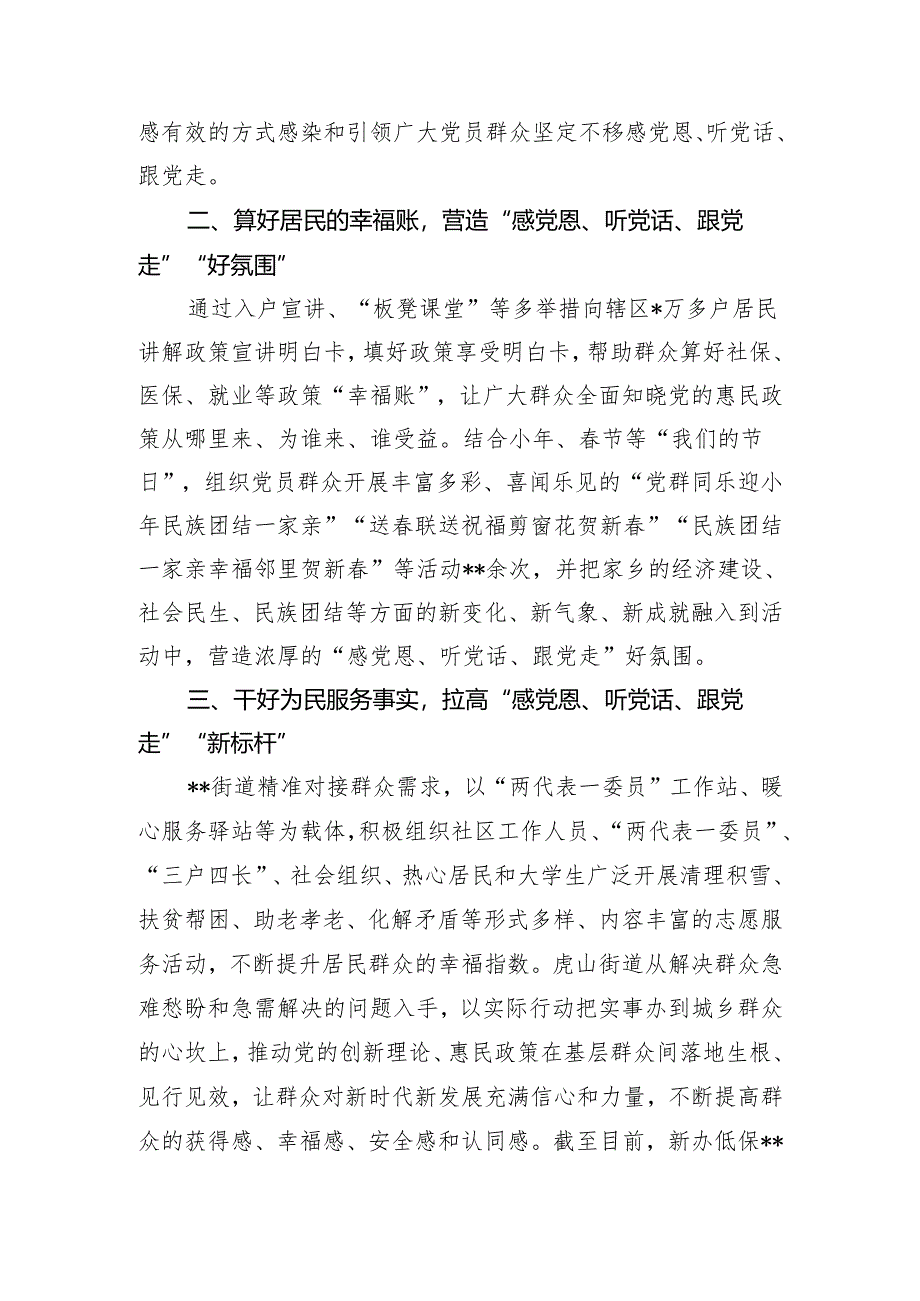 感有效的方式感染和引领广大党员群众坚定不移感党恩、听党话、
跟党走。
二、算好居民的幸福账，营造“感党恩、听党话、跟党
走”“好氛围”
通过入户宣讲、“板凳课堂”等多举措向辖区*万多户居民
讲解政策宣讲明白卡，填好政策享受明白卡，帮助群众算好社保、
医保、就业等政策“幸福账”，让广大群众全面知晓党的惠民政
策从哪里来、为谁来、谁受益。结合小年、春节等“我们的节
日”，组织党员群众开展丰富多彩、喜闻乐见的“党群同乐迎小
年民族团结一家亲”“送春联送祝福剪窗花贺新春”“民族团结
一家亲幸福邻里贺新春”等活动**余次，并把家乡的经济建设、
社会民生、民族团结等方面的新变化、新气象、新成就融入到活
动中，营造浓厚的“感党恩、听党话、跟党走”好氛围。
三、干好为民服务事实，拉高“感党恩、听党话、跟党
走”“新标杆”
**街道精准对接群众需求，以“两代表一委员”工作站、暖
心服务驿站等为载体，积极组织社区工作人员、“两代表一委员”、
“三户四长”、社会组织、热心居民和大学生广泛开展清理积雪、
扶贫帮困、助老孝老、化解矛盾等形式多样、内容丰富的志愿服
务活动，不断提升居民群众的幸福指数。虎山街道从解决群众急
难愁盼和急需解决的问题入手，以实际行动把实事办到城乡群众
的心坎上，推动党的创新理论、惠民政策在基层群众间落地生根、
见行见效，让群众对新时代新发展充满信心和力量，不断提高群
众的获得感、幸福感、安全感和认同感。截至目前，新办低保**